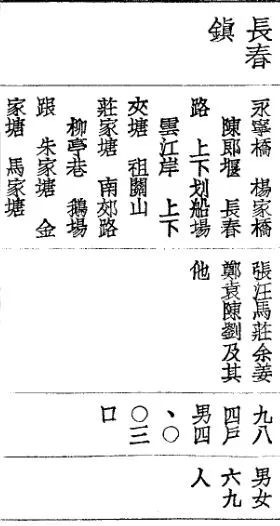 長春
鎮
永寧橋 楊家橋
陳郎堰 長春
路 上下划船場
雲江岸 上下
夾塘 祖關山
莊家塘 南郊路
柳亭巷 鵝場
跟 朱家塘 金
家塘 馬家塘
張汪馬莊余姜
鄭袁陳劉及其
他
九八
四戶
男四
、〇
〇三
口
男女
六九
人